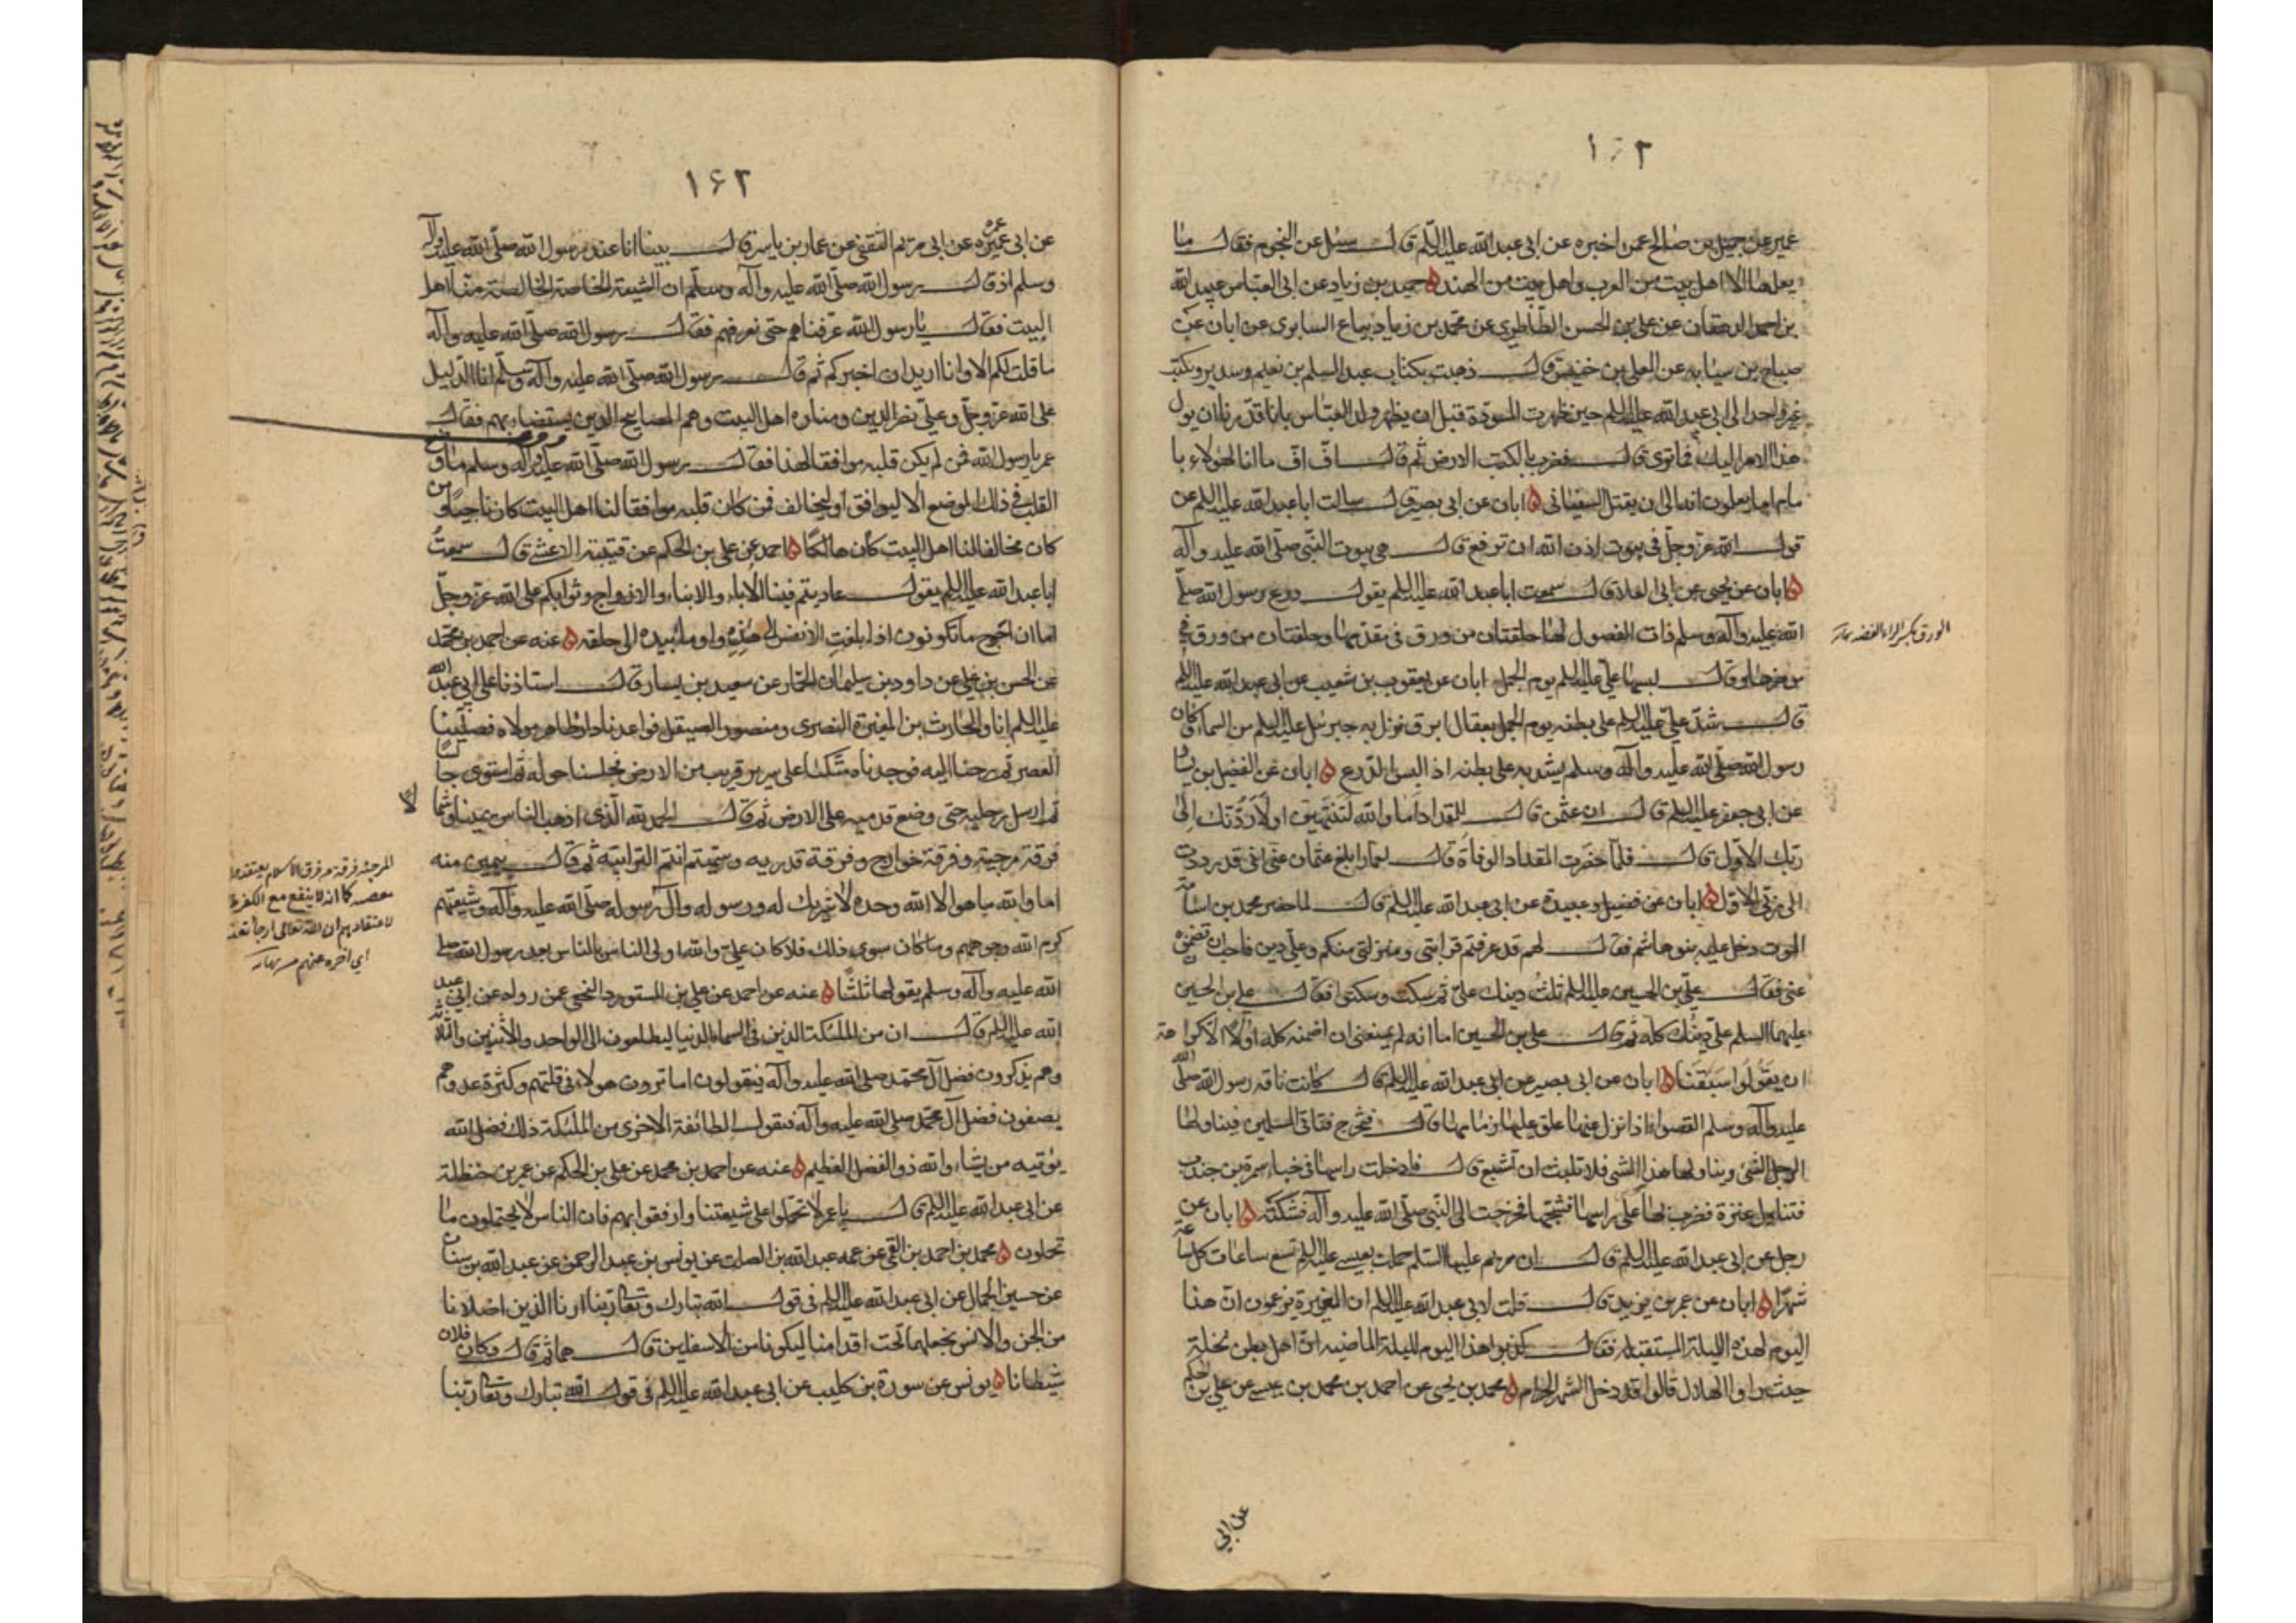 ١٦٢
عمير عن جميل بن صالح عمن اخبره عن ابي عبد الله عليه السلم قال سئل عن النجوم فقال ما
يعلمها الا اهل بيت من العرب واهل بيت من الهند ۵ حميد بن زياد عن ابي العباس عبيد الله
بن احمد الدهقان عن علي بن الحسن الطاطري عن محمد بن زياد بياع السابري عن ابان عن
صباح بن سيابه عن المعلى بن خنيس قال ذهبت بكتاب عبد السلم بن نعيم وسدير وكتب
غير واحد الى ابي عبد الله عليه السلم حين ظهرت المسودة قبل ان يظهر ولد العباس بانا قد قدرنا ان يول
هذا الامر اليك فما ترى قال فضرب بالكتب الارض ثم قال افّ افّ ما انا لهؤلاء با
مام اما يعلمون انه انما يقتل السفياني ۵ ابان عن ابي بصير قال سالت ابا عبد الله عليه السلم عن
قول الله عز وجلّ في بيوت اذن الله ان ترفع قال هي بيوت النبي صلّى الله عليه وآله
۵ ابان عن يحيى بن ابي العلا قال سمعت ابا عبد الله عليه السلم يقول درع رسول الله صلّى
الله عليه وآله وسلم ذات الفضول لها حلقتان من ورق في مقدمها وحلقتان من ورق في
مؤخرها وقال لبسها علي عليه السلم يوم الجمل ابان عن يعقوب بن شعيب عن ابي عبد الله عليه السلم
قال شدّ علي عليه السلم على بطنه يوم الجمل بعقال ابرق نزل به جبرئيل عليه السلم من السماء وكان
رسول الله صلّى الله عليه وآله وسلم يشد به على بطنه اذا لبس الدرع ۵ ابان عن الفضيل بن يسار
عن ابي جعفر عليه السلم قال ان عثمن قال للمقداد اما والله لَتَنْتَهِيَنّ اولَاَرُدَّنّكَ الى
ربّك الاول قال فلما حضرت المقداد الوفاة قال لعمار ابلغ عثمان عنى انى قد رددت
الى ربّى الاول ۵ ابان عن فضيل وعبيدة عن ابي عبد الله عليه السلم قال لما حضر محمد بن اسامة
الموت دخل عليه بنو هاشم فقال لهم قد عرفتم قرابتى ومنزلتى منكم وعلىّ دين فاحب ان تضمنوه
عنى فقال على بن الحسين عليه السلم ثلث دينك علىّ ثم سكت وسكتوا فقال علي بن الحسين
عليهما السلم علىّ دينك كله ثم قال على بن الحسين اما انه لم يمنعنى ان اضمنه كله اولا الا كراهة
ان يقولوا سبقنا ۵ ابان عن ابي بصير عن ابي عبد الله عليه السلم قال كانت ناقة رسول الله صلّى الله
عليه وآله وسلم القصواء اذا نزل عنها علق عليها زمامها قال فتخرج فتاتى المسلمين فيناولها
الرجل الشئ ويناولها هذا الشئ فلا تلبث ان تشبع قال فادخلت راسها في خباء سمرة بن جندب
فتناول عنزة فضرب بها على راسها فشجّها فخرجت الى النبي صلّى الله عليه وآله فشكته ۵ ابان عن
رجل عن ابي عبد الله عليه السلم قال ان مريم عليها السلم حملت بعيسى عليه السلم تسع ساعات كل ساعة
شهرًا ۵ ابان عن عمر بن يزيد قال قلت لابي عبد الله عليه السلم ان المغيرة يزعمون ان هذا
اليوم لهذه الليلة المستقبلة فقال كذبوا هذا اليوم لليلة الماضية انّ اهل بطن نخلة
حيث راوا الهلال قالوا قد دخل الشهر الحرام ۵ محمد بن يحيى عن احمد بن محمد بن عيسى عن علي بن الحكم
عن ابي
الورق بكسر الراء الفضة
١٦٢
عن ابي عميره عن ابي مريم الثقفي عن عمار بن ياسر قال بينا انا عند رسول الله صلّى الله عليه وآله
وسلم اذ قال رسول الله صلّى الله عليه وآله وسلّم ان الشيعة الخاصة الخالصة منّا اهل
البيت فقال يا رسول الله عرّفناهم حتى نعرفهم فقال رسول الله صلّى الله عليه وآله
ما قلت لكم الا وانا اريد ان اخبركم ثم قال رسول الله صلّى الله عليه وآله وسلّم انا الدليل
على الله عز وجلّ وعلىّ نصر الدين ومناره اهل البيت وهم المصابيح الذين يستضاء بهم فقال
عمر يا رسول الله فمن لم يكن قلبه موافقا لهذا فقال رسول الله صلّى الله عليه وآله وسلم ما وضع
القلب في ذلك الموضع الا ليوافق او ليخالف فمن كان قلبه موافقا لنا اهل البيت كان ناجيًا ومن
كان مخالفا لنا اهل البيت كان هالكًا ۵ احمد عن علي بن الحكم عن قتيبة الاعشى قال سمعت
ابا عبد الله عليه السلم يقول عاديتم فينا الآباء والابناء والازواج وثوابكم على الله عز وجلّ
اما ان احوج ما تكونون اذا بلغت الانفس الى هذه واومأ بيده الى حلقه ۵ عنه عن احمد بن محمد
عن الحسن بن علي عن داود بن سليمان الحمّار عن سعيد بن يسار قال استاذنا على ابي عبد الله
عليه السلم انا والحارث بن المغيرة النصرى ومنصور الصيقل فواعدنا دار طاهر مولاه فصلّينا
العصر ثم رحنا اليه فوجدناه متكئا على سرير قريب من الارض فجلسنا حوله ثم استوى جالسًا
ثم ارسل رجليه حتى وضع قدميه على الارض ثم قال الحمد لله الّذى اذهب الناس يمينا وشمالا
فرقة مرجية وفرقة خوارج وفرقة قدريه وسمّيتم انتم الترابية ثم قال بيمين منه
اما والله ما هو الا الله وحده لا شريك له ورسوله وآل رسوله صلّى الله عليه وآله وشيعتهم
كرم الله وجوههم وما كان سوى ذلك فلا كان علىّ والله اولى الناس بالناس بعد رسول الله صلى
الله عليه وآله وسلم يقولها ثلثًا ۵ عنه عن احمد عن علي بن المستورد النخعى عن رواه عن ابي عبد
الله عليه السلم قال ان من الملئكة الذين في السماء الدنيا ليطلعون الى الواحد والاثنين والثلثة
وهم يذكرون فضل آل محمّد صلى الله عليه وآله فيقولون اما ترون هولاء في قلتهم وكثرة عدوهم
يصفون فضل آل محمّد صلى الله عليه وآله فتقول الطائفة الاخرى من الملئكة ذلك فضل الله
يؤتيه من يشاء والله ذو الفضل العظيم ۵ عنه عن احمد بن محمد عن علي بن الحكم عن عمر بن حنظلة
عن ابي عبد الله عليه السلم قال يا عمر لا تحملوا على شيعتنا وارفقوا بهم فان الناس لا يحتملون ما
تحملون ۵ محمد بن احمد بن القمى عن عمه عبد الله بن الصلت عن يونس بن عبد الرحمن عن عبد الله بن سنان
عن حسين الجمال عن ابي عبد الله عليه السلم في قول الله تبارك وتعالى ربنا ارنا الذين اضلانا
من الجن والانس نجعلهما تحت اقدامنا ليكونا من الاسفلين قال هما ثم قال وكان فلان
شيطانا ۵ يونس عن سورة بن كليب عن ابي عبد الله عليه السلم في قول الله تبارك وتعالى ربنا
المرجئة فرقة من فرق الاسلام يعتقدون
معصية كما انه لا ينفع مع الكفر
لاعتقادهم ان الله تعالى ارجأ
اي اخره عنهم